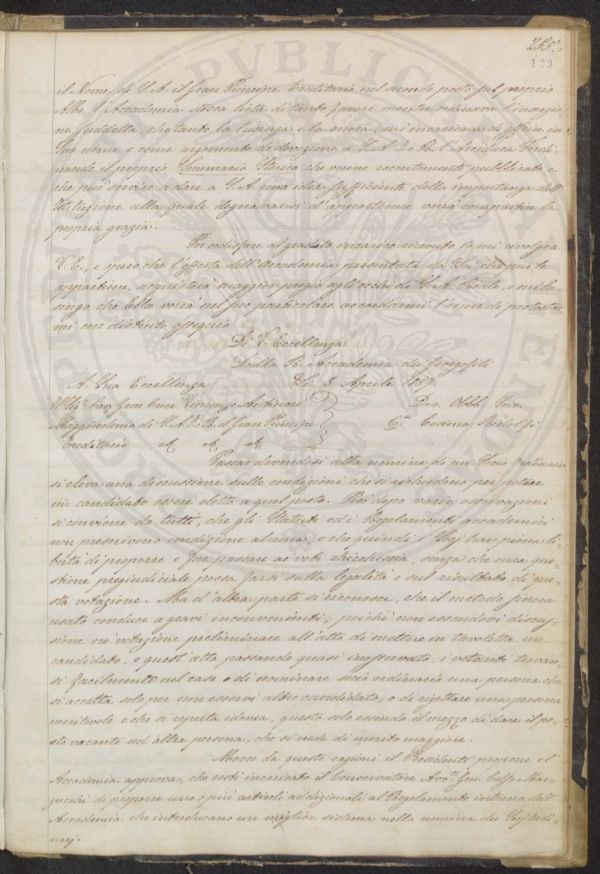 255.
129
il Nome di S. A. il Gran Principe Ereditario nel secondo posto pel proprio
Albo, l'Accademia stessa lieta di tanto favore mentre ordinava l'inscrizio-
ne suddetta, che tanto la lusinga e la onora, mi incaricava di offrire in
suo nome e come argomento di devozione a S. A. I. e R. l'Arciduca Ferdi-
nando il proprio Sommario Storico che venne recentemente pubblicato e
che può servire a dare a S. A. una idea sufficiente della importanza dell'
Istituzione alla quale degnavasi d'appartenere
propria grazia.
Per adisfare al gradito incarico ricevuto io mi rivolgo a
V. E., e spero che l'offerta dell'Accademia presentata da Lei che pur le
appartiene, acquisterà maggior pregio agli occhi di S. A. Reale, e mi lu-
singo che Ella vorrà nel suo particolare accordarmi l'onore di protestar-
mi con distinto ossequio
Di V. Eccellenza
Dalla R. Accademia dei Georgofili
A Sua Eccellenza
Li 5 Aprile 1857.
Vincenzo Antinori
Dev. Obbl. Serv.
Maggiordomo di S. A. I. e R. il Gran Principe
C. Cosimo Ridolfi
Ereditario
Passar dovendosi alla nomina di un Socio Ordinario
si eleva una discussione sulle condizioni che si richiedono per potere
un candidato essere eletto a quel posto. Poi dopo varie osservazioni
si conviene da tutti, che gli Statuti ed i Regolamenti accademici
non prescrivono condizione alcuna, e che quindi i Socj han piena li-
bertà di proporre e far passare ai voti chicchessia, senza che una que-
stione pregiudiciale possa farsi sulla legalità e sul risultato di que-
sta votazione. Ma d'altra parte si riconosce, che il metodo finora
usato conduce a gravi inconvenienti; poichè non essendovi discus-
sione nè votazione preliminare all'atto di mettere in tavoletta un
candidato, e quest'atto passando quasi inosservato, i votanti trovan-
si facilmente nel caso o di nominare socio ordinario una persona che
si accetta solo per non esservi altro candidato, o di rigettare una persona
meritevole e che si reputa idonea, questo solo essendo il mezzo di dare il po-
sto vacante ad altra persona, che si crede di merito maggiore.
Mosso da queste cagioni il Presidente propone e l'
Accademia approva, che resti incaricato il Conservatore Avv. Gen. Celso Mar-
zucchi di proporre uno o più articoli addizionali al Regolamento interno dell'
Accademia che introducano un miglior sistema nella nomina dei Socj Ordi-
narj.